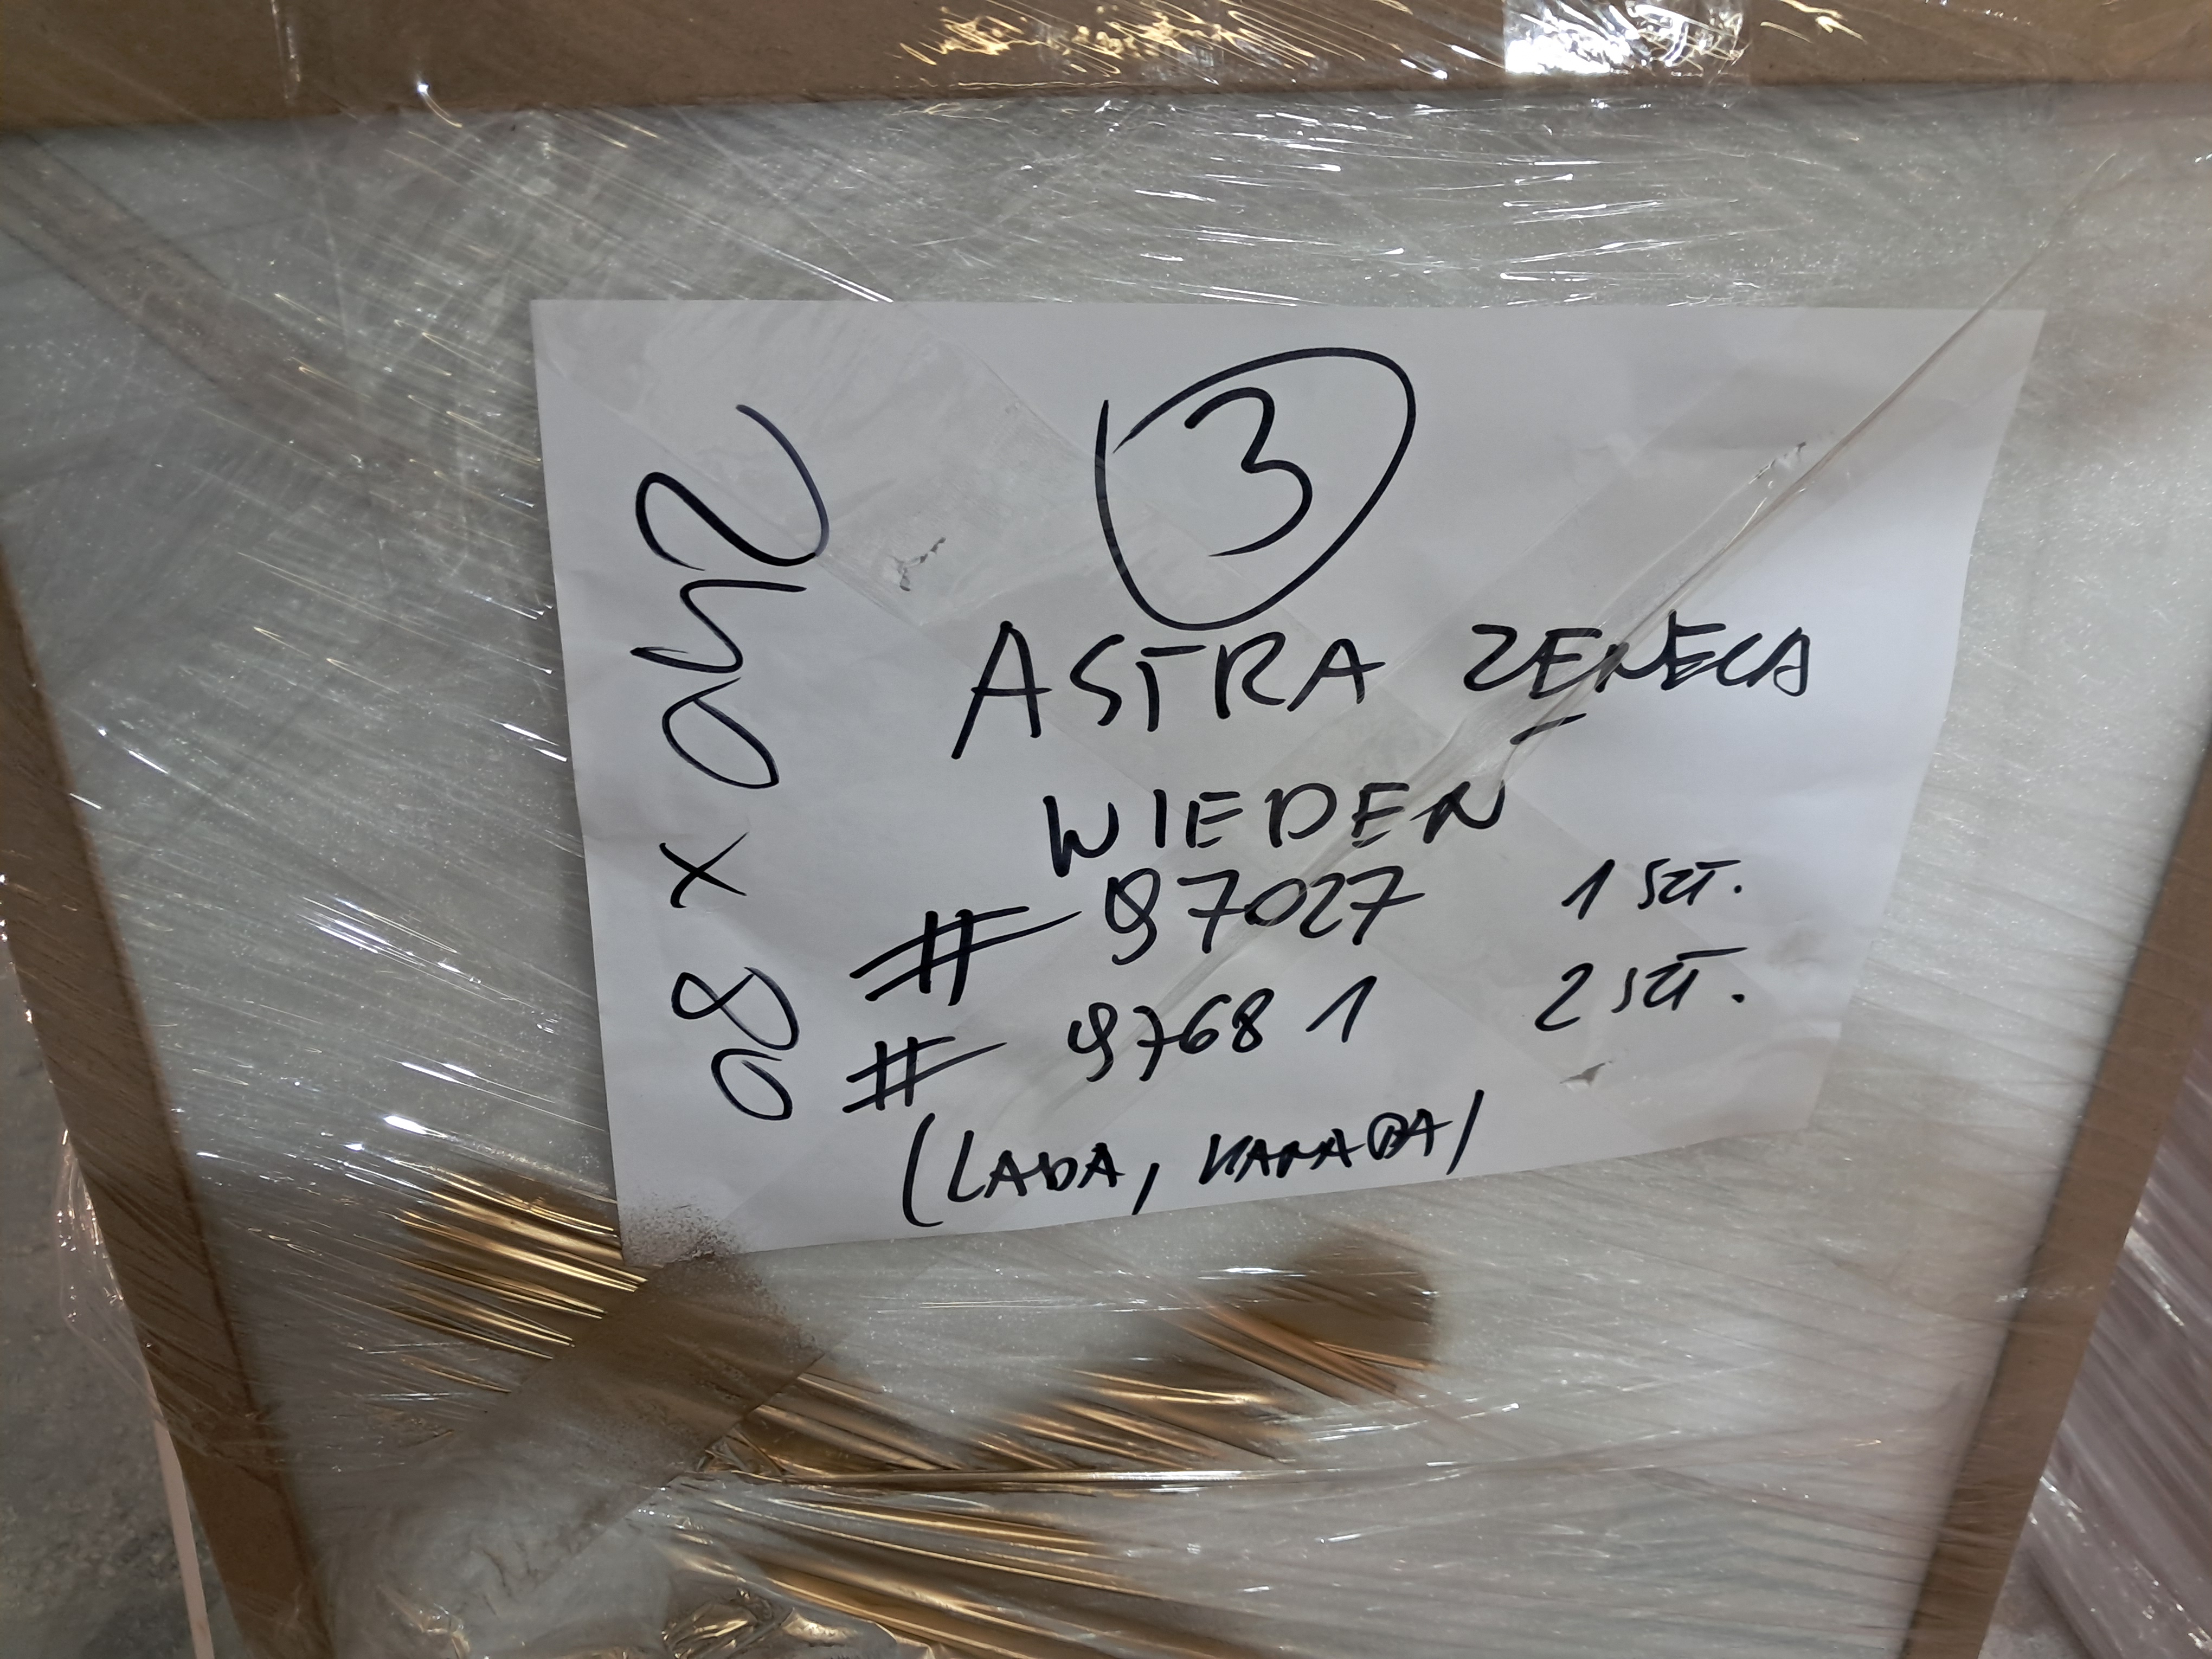 3
ASTRA ZENECA
WIEDEŃ
# 97027 1 SZT.
# 97681 2 SZT.
(LADA, KANAPA)
240 x 80